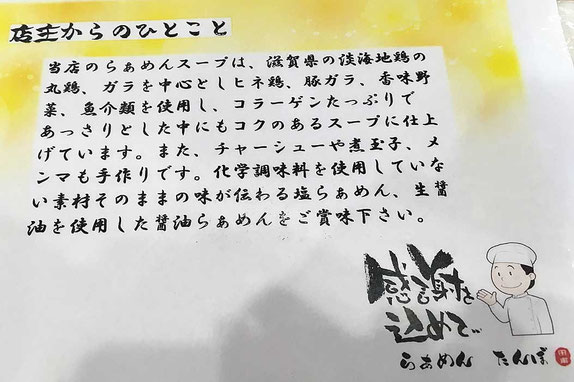 店主からのひとこと
当店のらぁめんスープは、滋賀県の淡海地鶏の
丸鶏、ガラを中心としヒネ鶏、豚ガラ、香味野
菜、魚介類を使用し、コラーゲンたっぷりで
あっさりとした中にもコクのあるスープに仕上
げています。また、チャーシューや煮玉子、メ
ンマも手作りです。化学調味料を使用していな
い素材そのままの味が伝わる塩らぁめん、生醤
油を使用した醤油らぁめんをご賞味下さい。
感謝を
込めて
らぁめん たんぽ